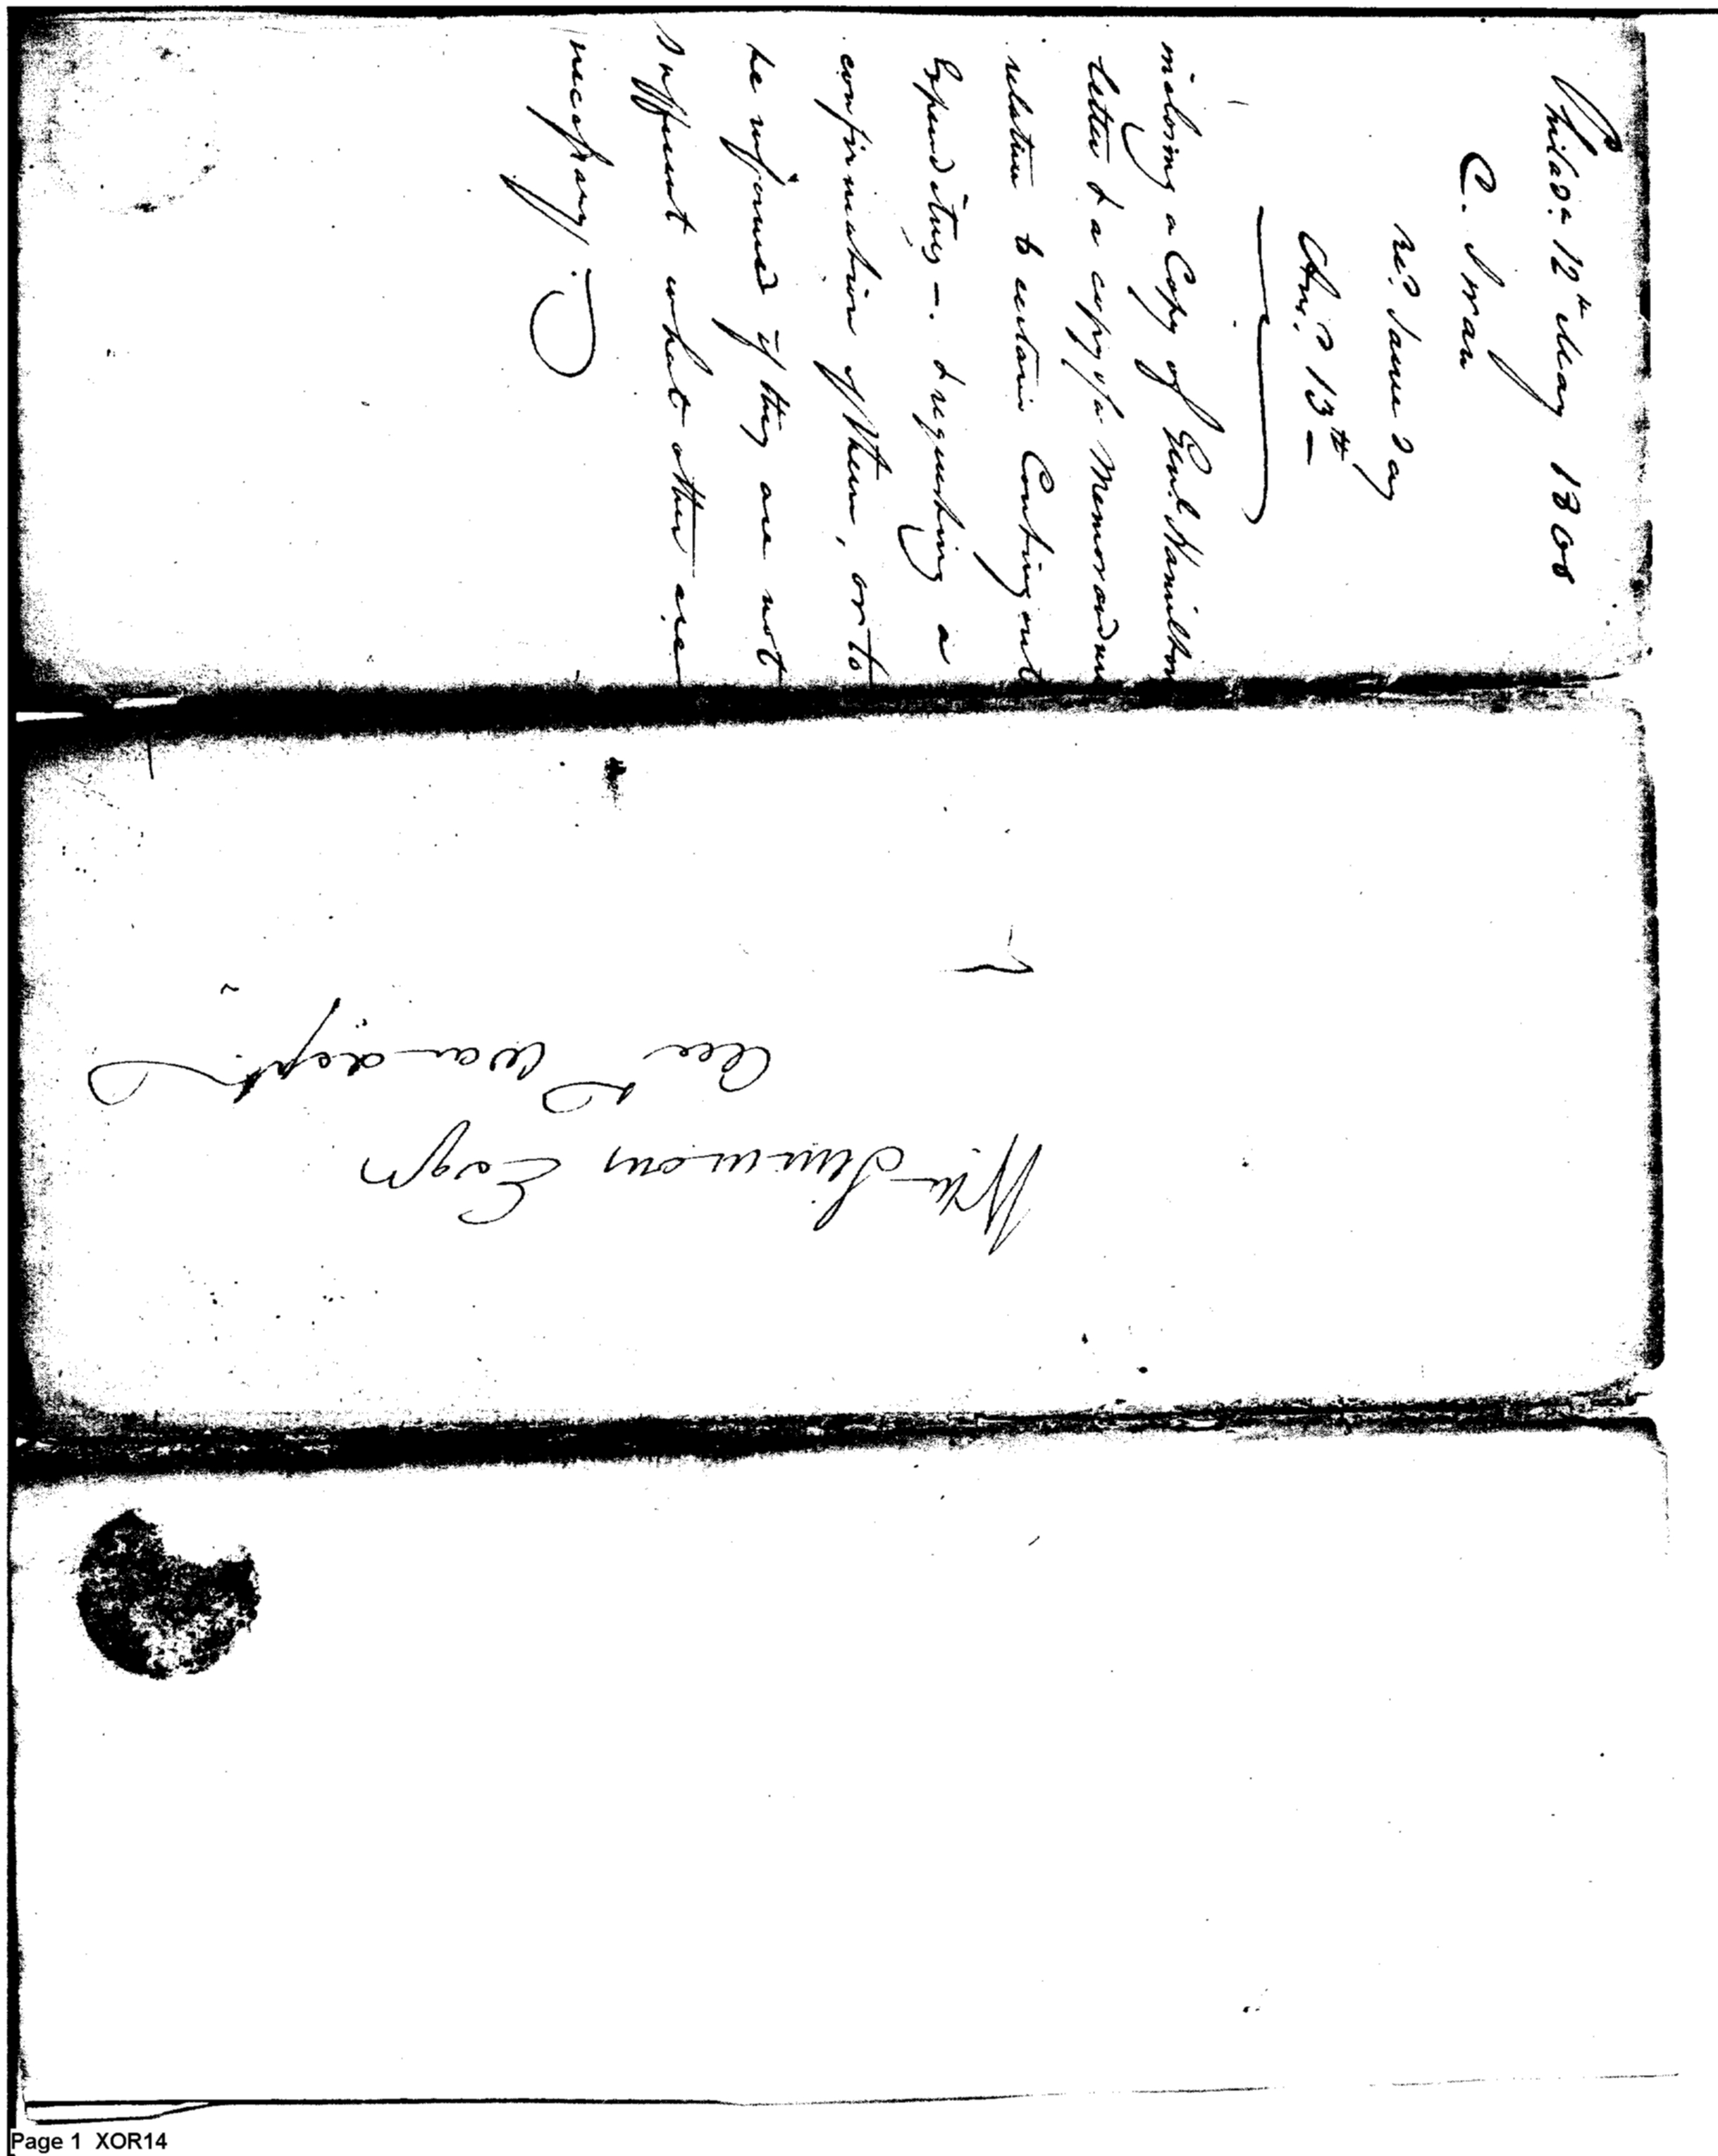 Philada. 12th May 1800
C. Swan
recd. same day
Ansd. 13th —
inclosing a Copy of Genl. Hamilton
letter & a copy of a Memorandum
relative to certain Contingent
Expenditures — & requesting a
confirmation of them, or to
be informed if they are not
suffient what other are
necessary.
Wm Simmons Esqr
Acct War dept.
Page 1 XOR14